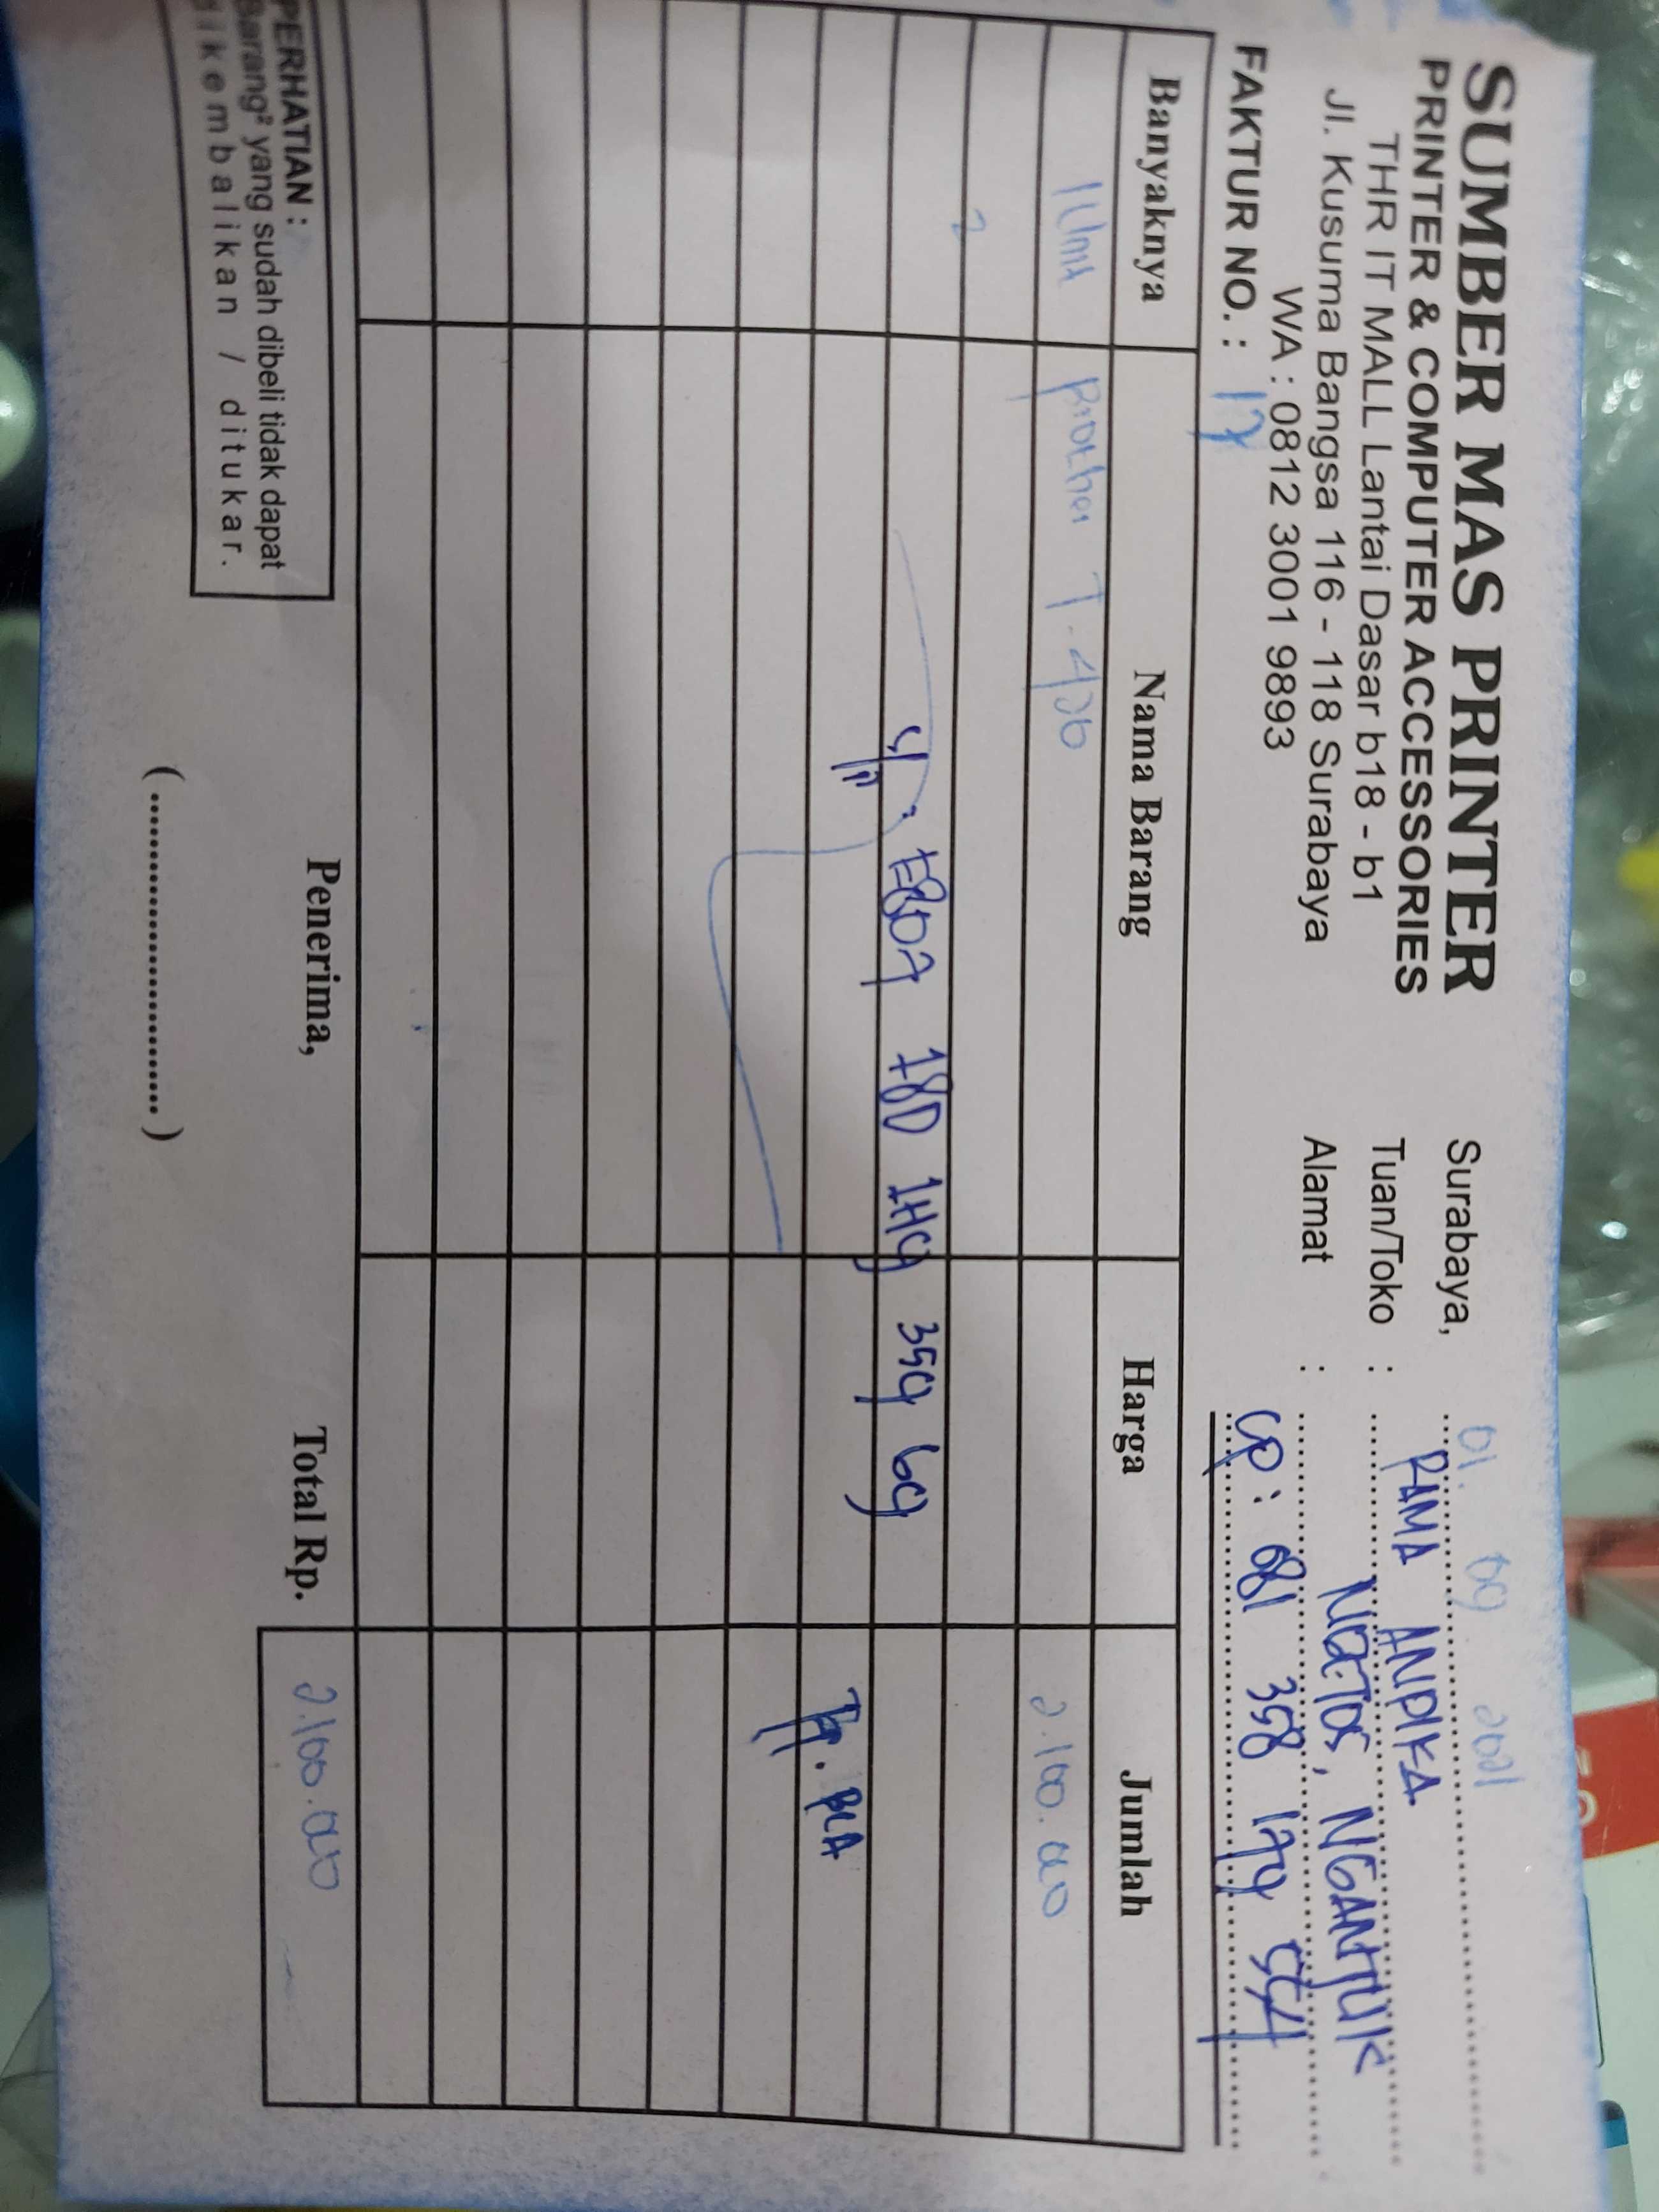 SUMBER MAS PRINTER
PRINTER & COMPUTER ACCESSORIES
THR IT MALL Lantai Dasar b18 - b1
Jl. Kusuma Bangsa 116 - 118 Surabaya
WA : 0812 3001 9893
FAKTUR NO. : 17
Surabaya, 01. 09 2021
Tuan/Toko : RAMA ANDIKA
Alamat : NGETOS, NGANJUK
CP : 081 358 179 554
Banyaknya Nama Barang Harga Jumlah
1 Unit Brother T-420 2.100.000
E80 180 359
BCA
PERHATIAN :
Barang² yang sudah dibeli tidak dapat
dikembalikan / ditukar.
Penerima,
(........................)
Total Rp. 2.100.000